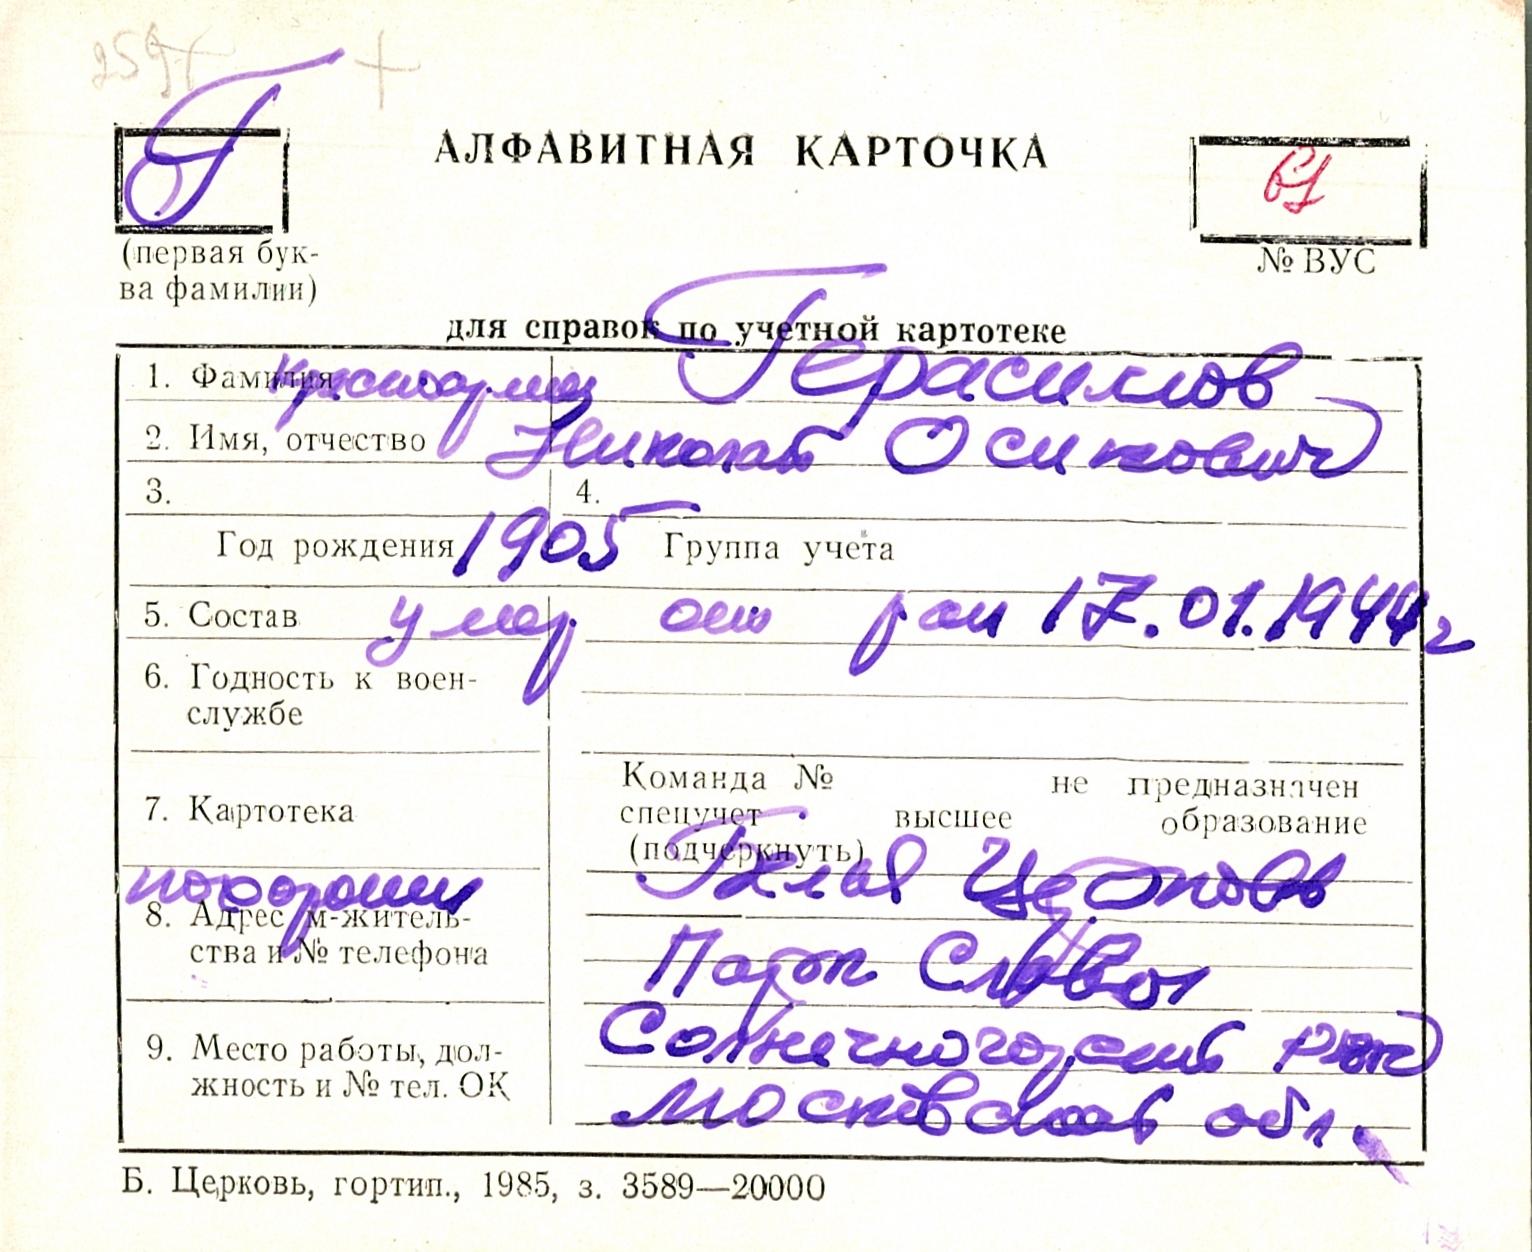 Г
АЛФАВИТНАЯ КАРТОЧКА
61
(первая бук-
ва фамилии)
№ ВУС
для справок по учетной картотеке
1. Фамилия Герасимов
2. Имя, отчество Николай Осипович
3. 4.
Год рождения 1905 Группа учета
5. Состав умер от ран 17.01.1944 г
6. Годность к воен-
службе
Команда № не предназначен
7. Картотека
спецучет высшее образование
(подчеркнуть)
похоронен Белая Церковь
8. Адрес м-житель-
ства и № телефона
Парк Славы
Солнечногорский
9. Место работы, дол-
жность и № тел. ОК
Московская обл.
Б. Церковь, гортип., 1985, з. 3589—20000